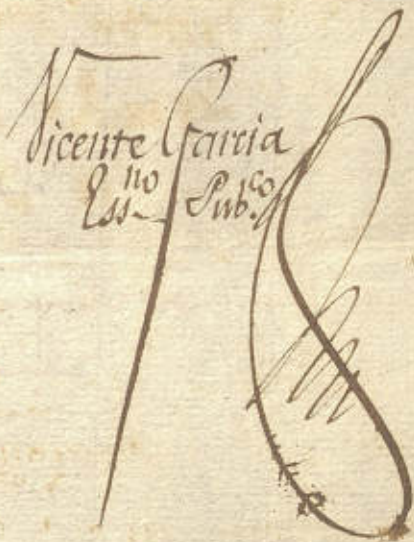 Vicente Garcia
Ess.no Pub.co